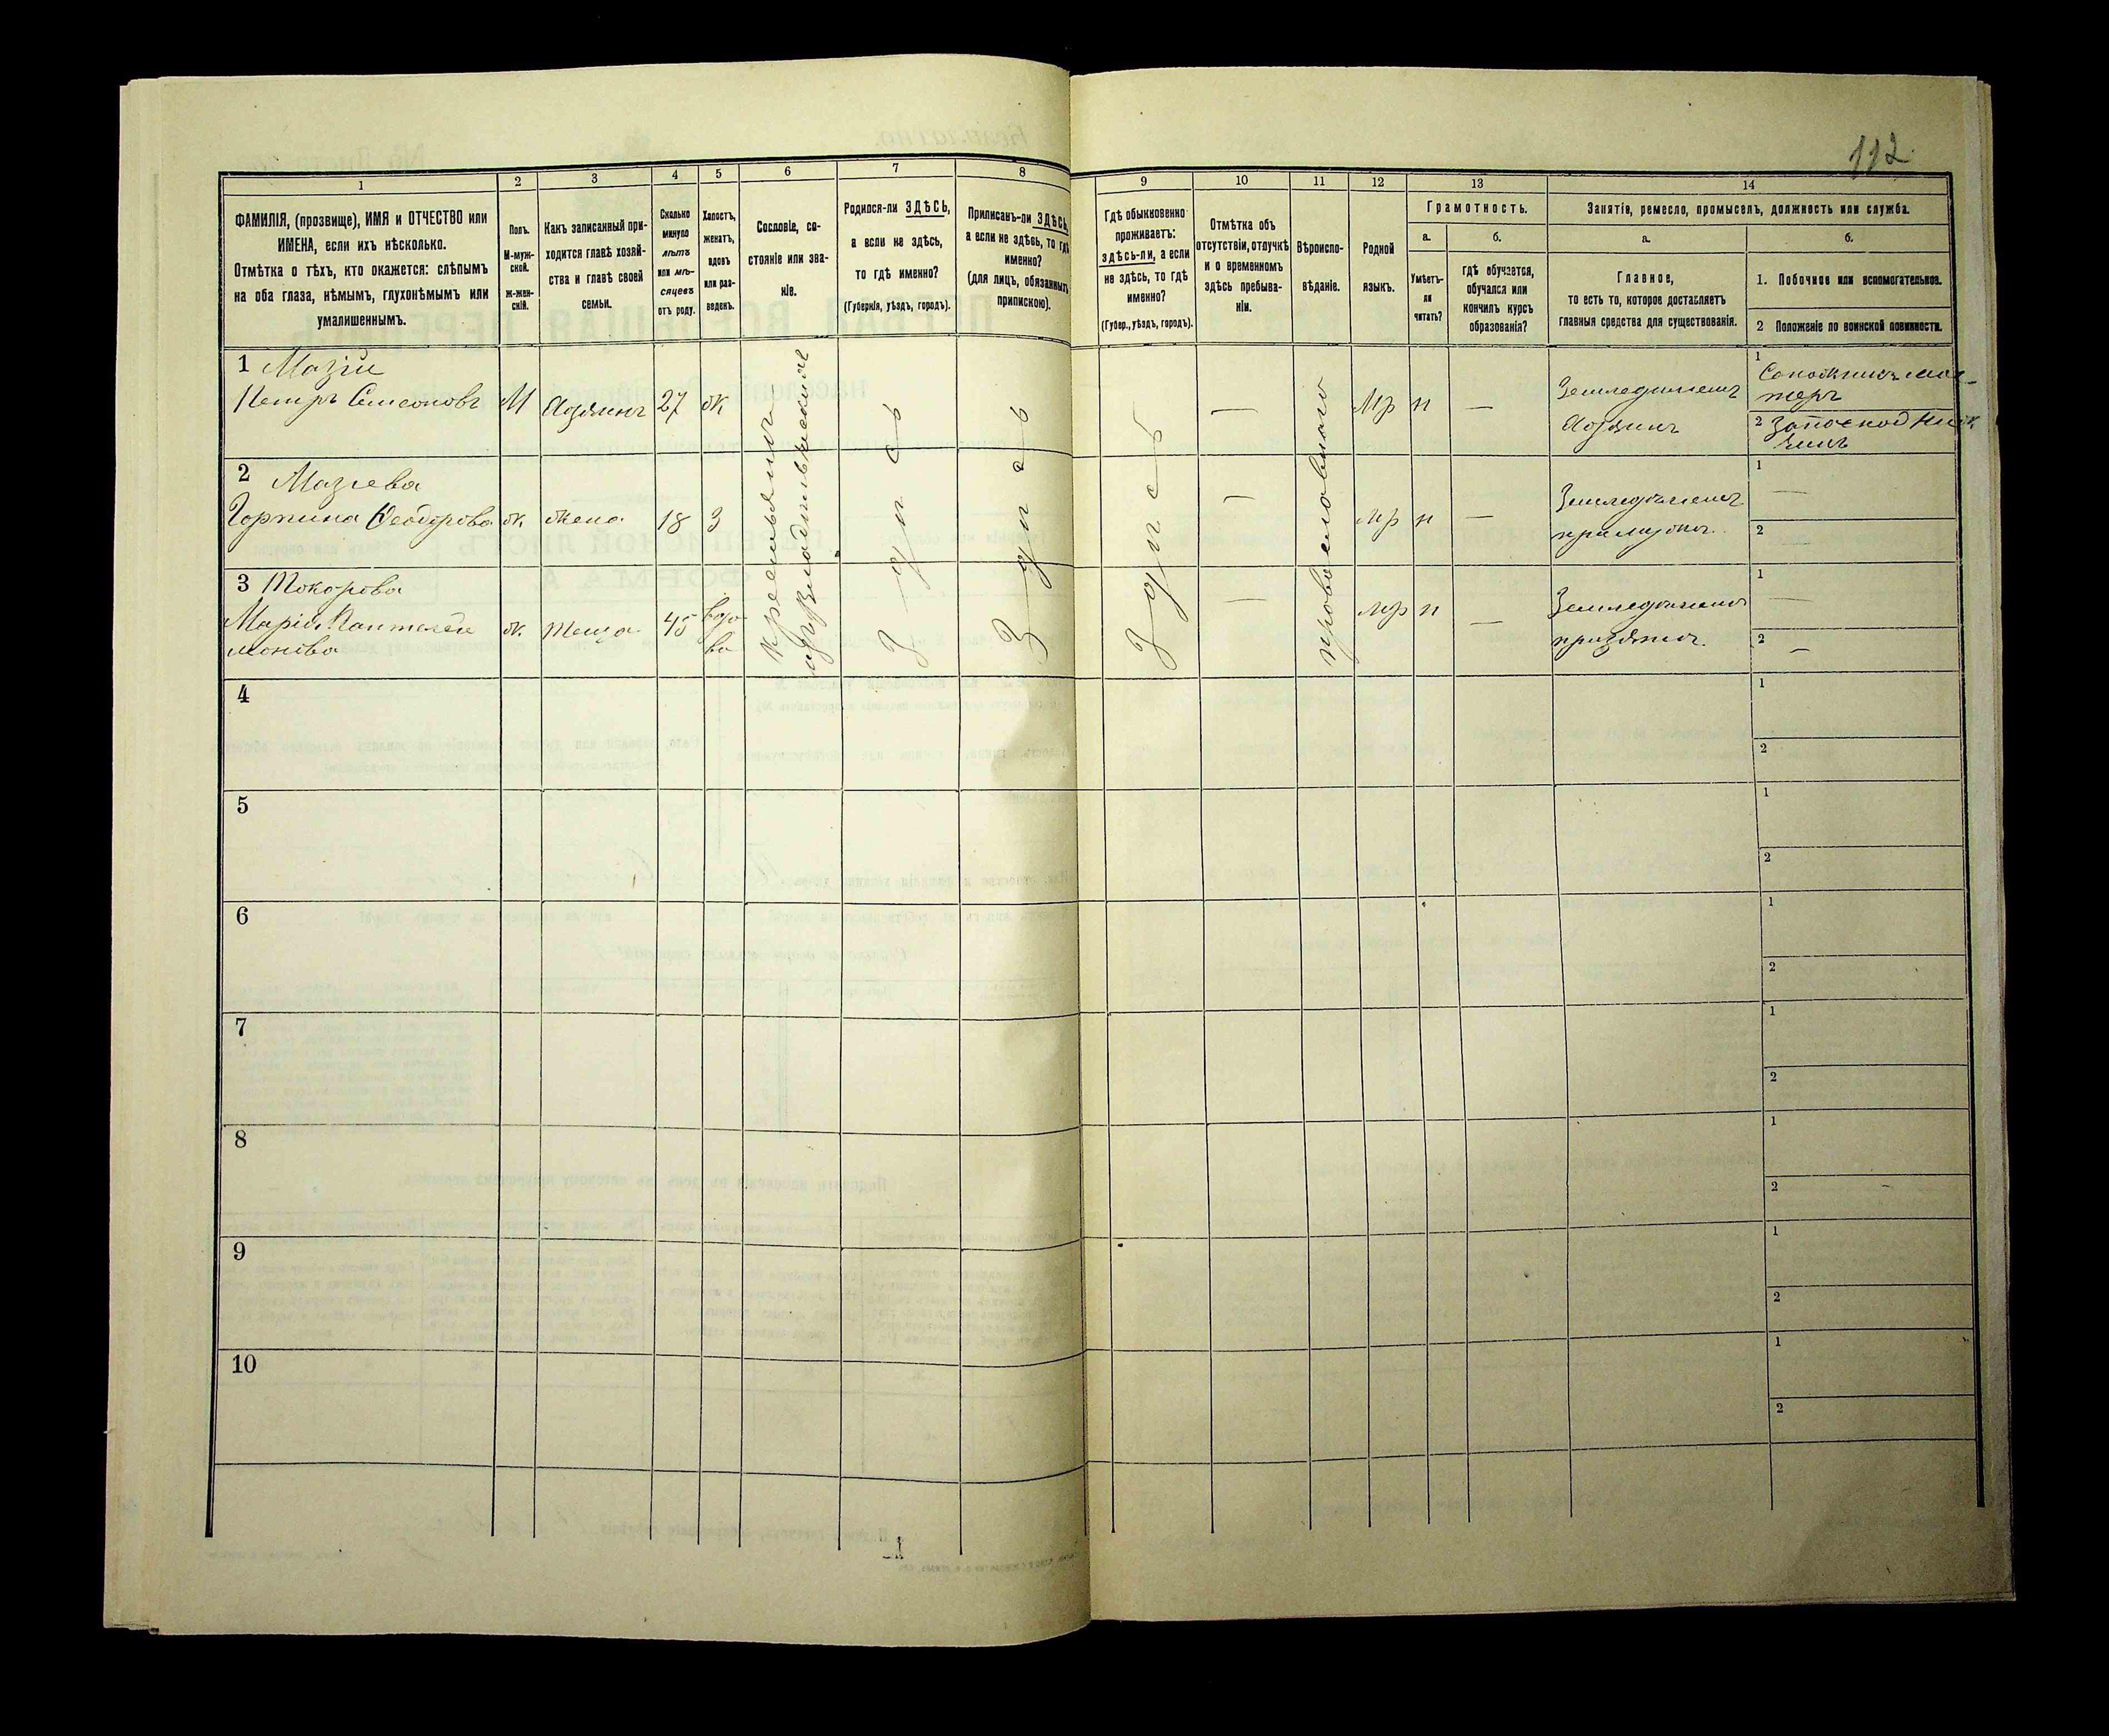 112
1 2 3 4 5 6 7 8 9 10 11 12 13 14
ФАМИЛІЯ, (прозвище), ИМЯ и ОТЧЕСТВО или
ИМЕНА, если ихъ нѣсколько.
Отмѣтка о тѣхъ, кто окажется: слѣпымъ
на оба глаза, нѣмымъ, глухонѣмымъ или
умалишеннымъ.
Полъ.
М-муж-
ской.
ж-жен-
скій.
Какъ записанный при-
ходится главѣ хозяй-
ства и главѣ своей
семьи.
Сколько
минуло
лѣтъ
или мѣ-
сяцевъ
отъ роду.
Холостъ,
женатъ,
вдовъ
или раз-
веденъ.
Сословіе, со-
стояніе или зва-
ніе.
Родился-ли ЗДѢСЬ,
а если не здѣсь,
то гдѣ именно?
(Губернія, уѣздъ, городъ).
Приписанъ-ли ЗДѢСЬ,
а если не здѣсь, то гдѣ
именно?
(для лицъ, обязанныхъ
припискою).
Гдѣ обыкновенно
проживаетъ:
здѣсь-ли, а если
не здѣсь, то гдѣ
именно?
(Губер., уѣздъ, городъ).
Отмѣтка объ
отсутствіи, отлучкѣ
и о временномъ
здѣсь пребыва-
ніи.
Вѣроиспо-
вѣданіе.
Родной
языкъ.
Грамотность.
а.
Умѣетъ-
ли
читать?
б.
гдѣ обучается,
обучался или
кончилъ курсъ
образованія?
Занятіе, ремесло, промыселъ, должность или служба.
а.
Главное,
то есть то, которое доставляетъ
главныя средства для существованія.
б.
1. Побочное или вспомогательное.
2 Положеніе по воинской повинности.
1 Мазій
Петръ Семеоновъ М Хозяинъ 27 ж — Мр н — Земледѣлецъ
Хозяинъ
1
2
2 Мазіева
Горпина Феодорова ж жена 18 З — Мр н —
1 —
2 —
3 Токорова
Марія
ж. теща 45 вдо-
ва — Мр н —
1 —
2 —
здѣсь
здѣсь
здѣсь
православнаго
4 1
2
5 1
2
6 1
2
7 1
2
8 1
2
9 1
2
10 1
2